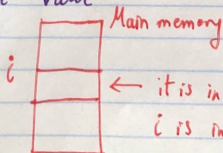 Main memory
i
← it is in
i is in